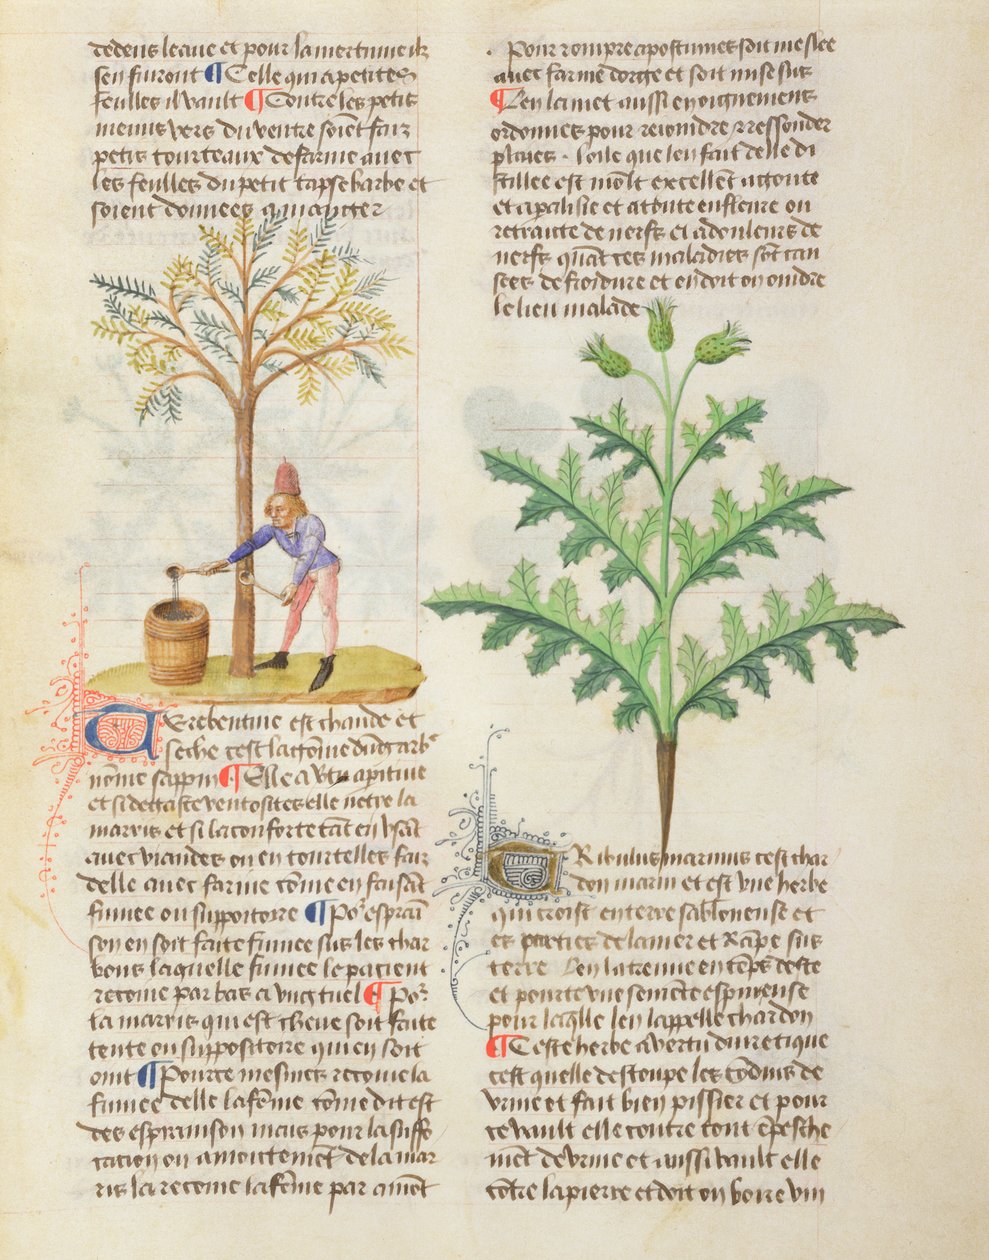 dedens leaue et pour lamertume ilz
sen fuiront ¶ Celle qui a petites
feulles il vault ¶ Contre les petis
menus vers du ventre soiēt faiz
petis tourteaux de farine auec
les feulles du petit tapsebarbe et
soient donnees a mangier
Terebentine est chaude et
seche cest la gōme dūg arbre
nōme sappin ¶ Elle a vtu apitiue
et si degaste ventosites elle nettoie la
marris et si la conforte tāt en vsāt
auec viandes ou en tourtelles faiz
delle auec farine cōme en faisāt
fumee ou suppoitoire ¶ Por espran
son en soit faite fumee sus les char
bons laquelle fumee le pacient
recoiue par bas a vng tuel ¶ Por
la marris qui est cheue soit faite
tente ou suppositoire qui en soit
oint ¶ Pour ce mesmes recoiue la
fumee delle la fēme cōme dit est
des espranison mais pour la suffo
cacion ou amortemēt de la mar
ris la recoiue la fēme par amōt
Pour rompre apostumes soit meslee
auec farine dorge et soit mise sus
¶ Len la met aussi en oignemens
ordonnes pour reioindre et ressonder
plaies . Loile que len fait delle di
stillee est mōlt excellēt a goute
et a palisie et a toute enfleure ou
retraicte de nerfs et a douleurs de
nerfs quāt ces maladies sōt cau
sees de froidure et en doit on oindre
le lieu malade
Tribulus marinus cest char
don marin et est vne herbe
qui croist en terre sabloneuse et
es parties de la mer et Rāpe sus
terre Len la treuue en tēps deste
et porte vne semēce espineuse
pour laq̄lle len lappelle chardon
¶ Ceste herbe a vertu diuretique
cest quelle destoupe les cōduis de
vrine et fait bien pissier et pour
ce vault elle contre tout ēpesche
mēt de vrine et aussi vault elle
cōtre la pierre et doit on boire vin